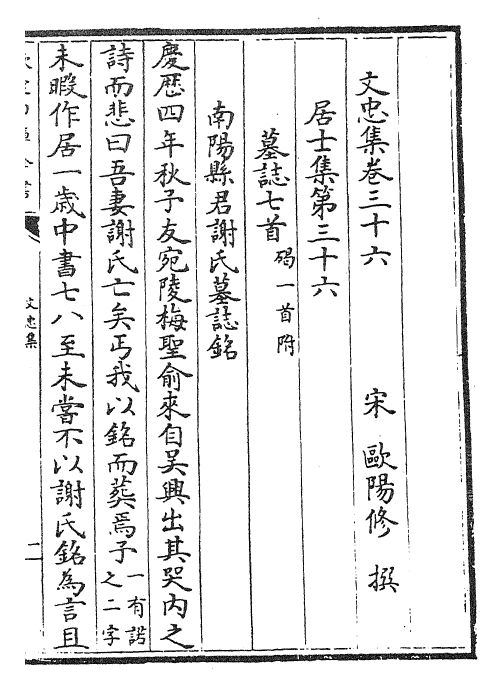 文忠集卷三十六
宋 歐陽修 撰
居士集第三十六
墓誌七首 碣一首附
南陽縣君謝氏墓誌銘
慶歷四年秋予友宛陵梅聖俞來自吳興出其哭內之
詩而悲曰吾妻謝氏亡矣丐我以銘而葬焉予一有諾之二字
未暇作居一歲中書七八至未嘗不以謝氏銘為言且
文忠集
二